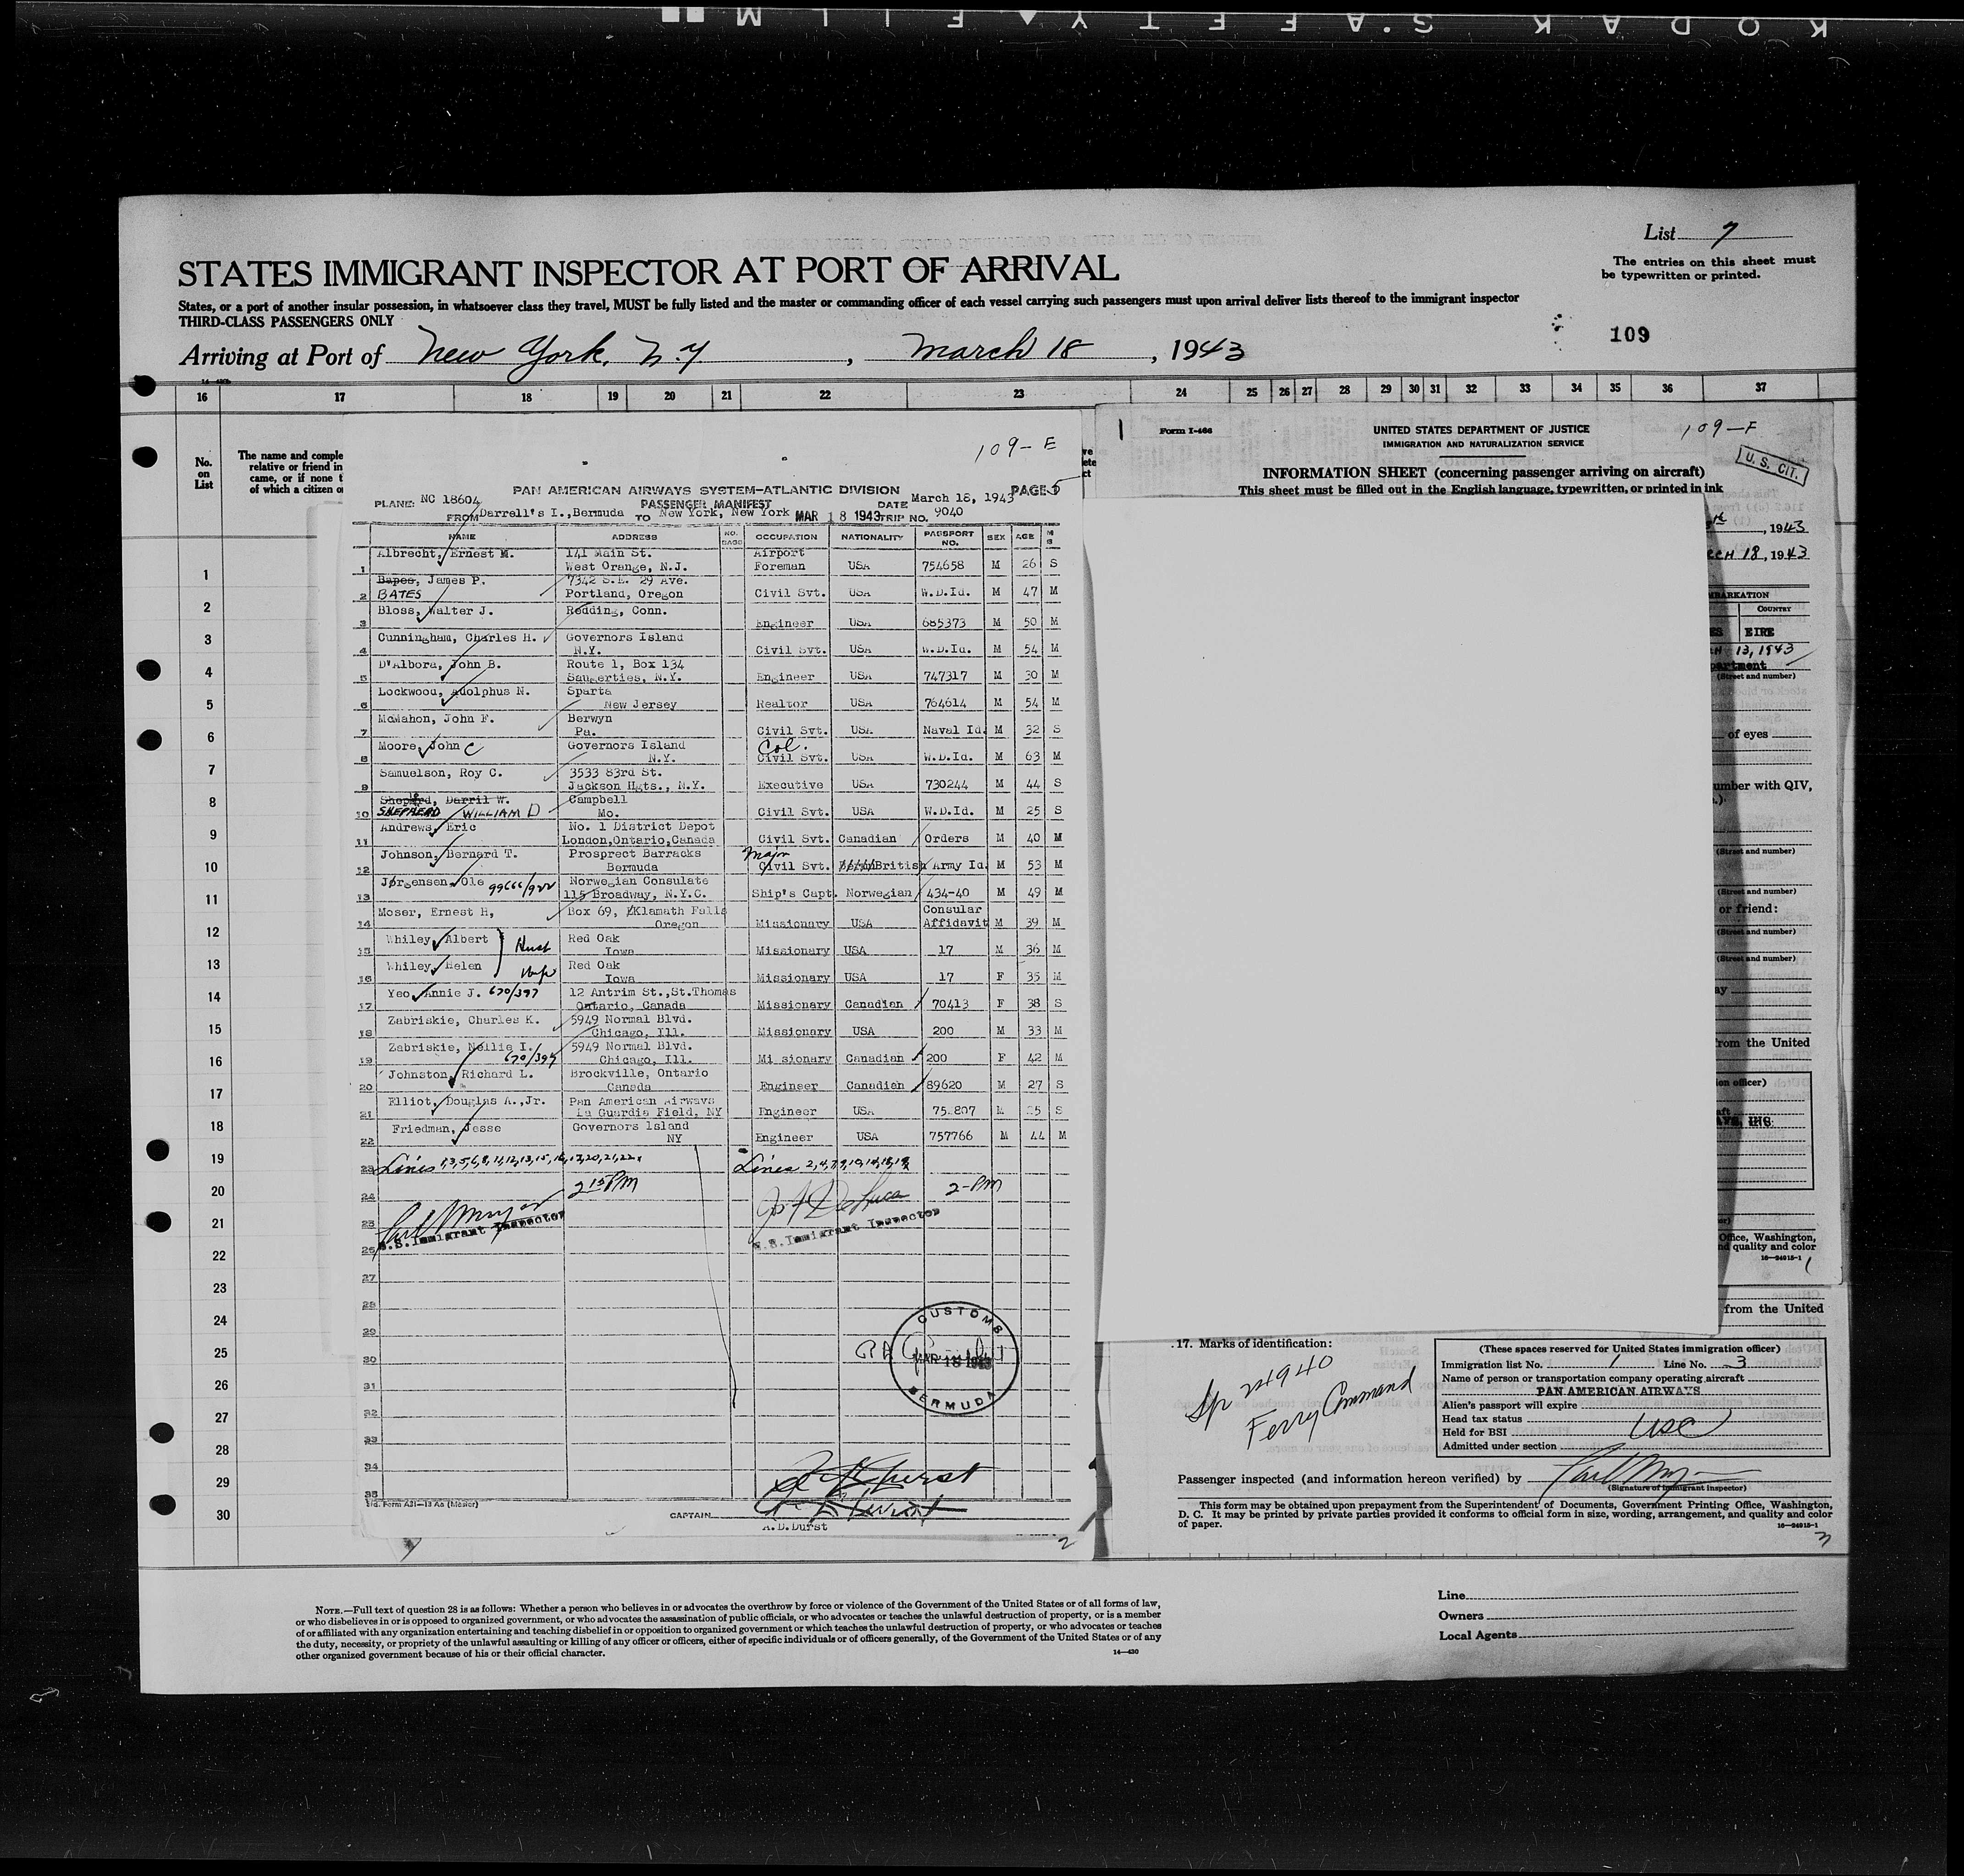 KODAK S·AFETY▲FILM
List 7
The entries on this sheet must
be typewritten or printed.
STATES IMMIGRANT INSPECTOR AT PORT OF ARRIVAL
States, or a port of another insular possession, in whatsoever class they travel, MUST be fully listed and the master or commanding officer of each vessel carrying such passengers must upon arrival deliver lists thereof to the immigrant inspector
THIRD-CLASS PASSENGERS ONLY
109
Arriving at Port of New York, N.Y. , March 18 , 1943
16 17 18 19 20 21 22 23 24 25 26 27 28 29 30 31 32 33 34 35 36 37
No.
on
List
The name and comple
relative or friend in
came, or if none t
of which a citizen o
109-E
PAN AMERICAN AIRWAYS SYSTEM-ATLANTIC DIVISION
PLANE: NC 18604 PASSENGER MANIFEST DATE March 18, 1943 PAGE 5
FROM Darrell's I., Bermuda TO New York, New York MAR 18 1943 TRIP NO. 9040
NAME ADDRESS NO. BAGS OCCUPATION NATIONALITY PASSPORT NO. SEX AGE M S
Albrecht, Ernest M. 141 Main St. Airport
1 West Orange, N.J. Foreman USA 754658 M 26 S
Bapes, James P. 7342 S.E. 29 Ave.
2 BATES Portland, Oregon Civil Svt. USA W.D.Id. M 47 M
Bloss, Walter J. Redding, Conn.
3 Engineer USA 685373 M 50 M
Cunningham, Charles H. Governors Island
4 N.Y. Civil Svt. USA W.D.Id. M 54 M
D'Albora, John B. Route 1, Box 134
5 Saugerties, N.Y. Engineer USA 747317 M 30 M
Lockwood, Adolphus N. Sparta
6 New Jersey Realtor USA 764614 M 54 M
McMahon, John F. Berwyn
7 Pa. Civil Svt. USA Naval Id. M 32 S
Moore, John C Governors Island Col.
8 N.Y. Civil Svt. USA W.D.Id. M 63 M
Samuelson, Roy C. 3533 83rd St.
9 Jackson Hgts., N.Y. Executive USA 730244 M 44 S
Shepard, Darril W. Campbell
10 SHEPHERD WILLIAM D Mo. Civil Svt. USA W.D.Id. M 25 S
Andrews, Eric No. 1 District Depot
11 London,Ontario,Canada Civil Svt. Canadian Orders M 40 M
Johnson, Bernard T. Prospect Barracks Major
12 Bermuda Civil Svt. British Army Id. M 53 M
Jørgensen, Ole 99666/922 Norwegian Consulate
13 115 Broadway, N.Y.C. Ship's Capt. Norwegian 434-40 M 49 M
Moser, Ernest H, Box 69, Klamath Falls Consular
14 Oregon Missionary USA Affidavit M 39 M
Whiley, Albert Husb Red Oak
15 Iowa Missionary USA 17 M 36 M
Whiley, Helen Wife Red Oak
16 Iowa Missionary USA 17 F 35 M
Yeo, Annie J. 670/397 12 Antrim St.,St.Thomas
17 Ontario, Canada Missionary Canadian 70413 F 38 S
Zabriskie, Charles K. 5949 Normal Blvd.
18 Chicago, Ill. Missionary USA 200 M 33 M
Zabriskie, Nellie I. 5949 Normal Blvd.
19 670/397 Chicago, Ill. Mi sionary Canadian 200 F 42 M
Johnston, Richard L. Brockville, Ontario
20 Canada Engineer Canadian 89620 M 27 S
Elliot, Douglas A.,Jr. Pan American Airways
21 La Guardia Field, NY Engineer USA M S
Friedman, Jesse Governors Island
22 NY Engineer USA 757766 M 44 M
23 Lines 1,3,5,6,8,11,12,13,15,16,17,20,21,22 Lines 2,4,7,9,10,14,18,19
24 2 15 PM 2-PM
25
U.S. Immigrant Inspector U.S. Immigrant Inspector
26
27
28
29
30
31
32
33
34
35
CUSTOMS
MAR 18 1943
BERMUDA
CAPTAIN
A.D.Durst
2
1
2
3
4
5
6
7
8
9
10
11
12
13
14
15
16
17
18
19
20
21
22
23
24
25
26
27
28
29
30
Form I-466
UNITED STATES DEPARTMENT OF JUSTICE
IMMIGRATION AND NATURALIZATION SERVICE
109-F
U. S. CIT.
INFORMATION SHEET (concerning passenger arriving on aircraft)
This sheet must be filled out in the English language, typewritten, or printed in ink
, 1943
CH 18, 1943
MBARKATION
COUNTRY
EIRE
13, 1943
partment
(Street and number)
of eyes
umber with QIV,
(Street and number)
(Street and number)
or friend:
(Street and number)
(Street and number)
rom the United
ion officer)
INC.
Office, Washington,
nd quality and color
16—24915-1
from the United
17. Marks of identification:
Sp 24940
Ferry Command
(These spaces reserved for United States immigration officer)
Immigration list No. 1 Line No. 3
Name of person or transportation company operating aircraft
PAN AMERICAN AIRWAYS
Alien's passport will expire
Head tax status
Held for BSI USC
Admitted under section
Passenger inspected (and information hereon verified) by
(Signature of immigrant inspector)
This form may be obtained upon prepayment from the Superintendent of Documents, Government Printing Office, Washington,
D. C. It may be printed by private parties provided it conforms to official form in size, wording, arrangement, and quality and color
of paper.
16—24915-1
3
NOTE.—Full text of question 28 is as follows: Whether a person who believes in or advocates the overthrow by force or violence of the Government of the United States or of all forms of law,
or who disbelieves in or is opposed to organized government, or who advocates the assassination of public officials, or who advocates or teaches the unlawful destruction of property, or is a member
of or affiliated with any organization entertaining and teaching disbelief in or opposition to organized government or which teaches the unlawful destruction of property, or who advocates or teaches
the duty, necessity, or propriety of the unlawful assaulting or killing of any officer or officers, either of specific individuals or of officers generally, of the Government of the United States or of any
other organized government because of his or their official character.
14—430
Line
Owners
Local Agents